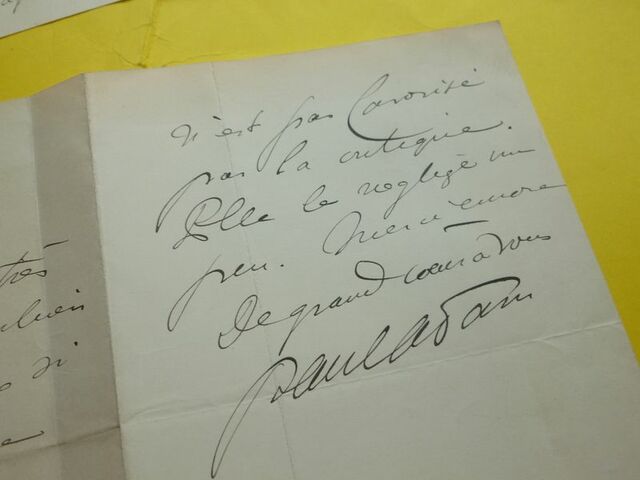 très
si
n'est pas favorisé
par la critique.
Elle le néglige un
peu. Merci encore
De grand cœur à vous
Paul Adam